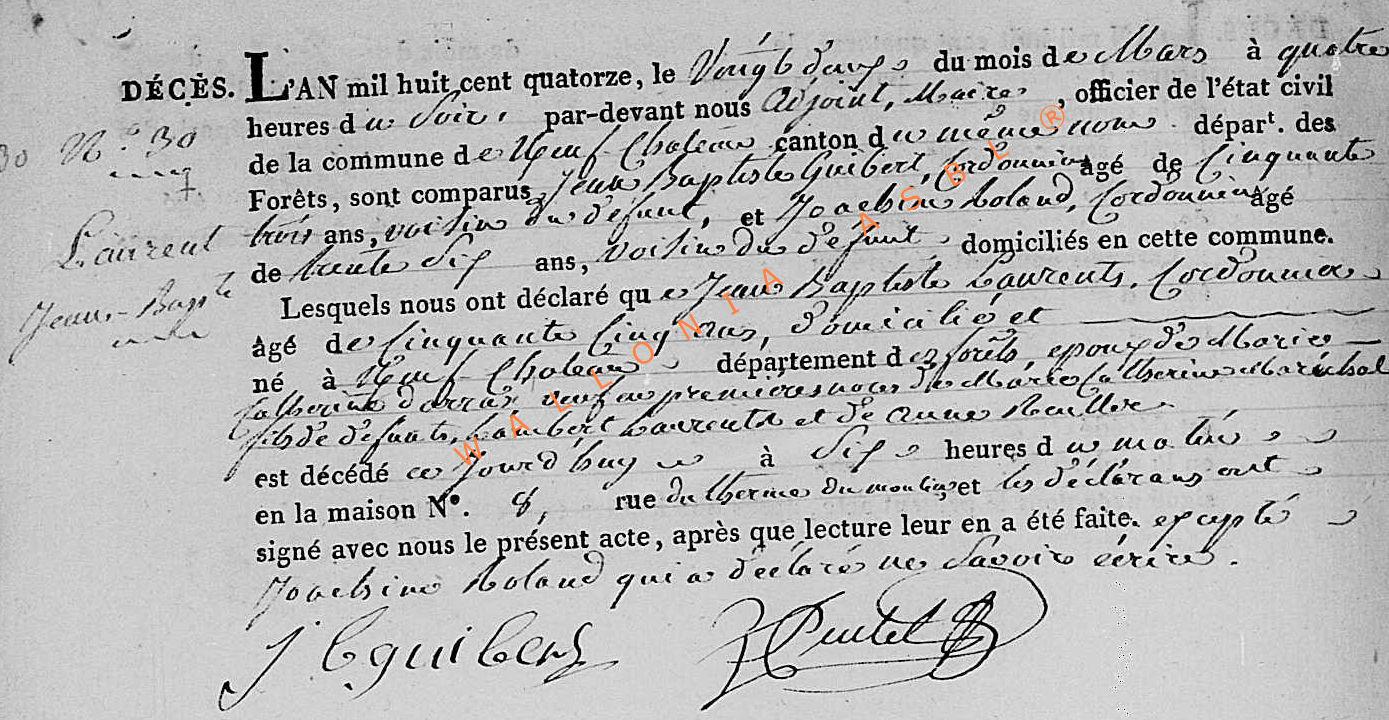 DÉCÈS. L'AN mil huit cent quatorze, le Vingt deux du mois de Mars à quatre
heures du Soir, par-devant nous Adjoint, Maire, officier de l'état civil
N.o 30
30
de la commune de Neuf-Chateau canton du même nom. départ. des
Forêts, sont comparus Jean Baptiste Guibert, Cordonnier âgé de Cinquante
trois ans, voisin du défunt, et Joachim Roland, Cordonnier âgé
Laurent
de trente Six ans, voisin du défunt, domiciliés en cette commune.
Jean-Bapte
Lesquels nous ont déclaré que Jean Baptiste Laurents, Cordonnier
âgé de Cinquante Cinq ans, domicilié et
né à Neuf-Chateau département des forêts, epoux de Marie
Catherine veuf en premieres noces de Marie Catherine Maréchal
fils de defunts, Lambert Laurents et de Anne
est décédé ce Jourd'huy à Six heures du matin
en la maison N.o 8, rue du therme du moulin, et les déclarans ont
signé avec nous le présent acte, après que lecture leur en a été faite. excepté
Joachim Roland qui a déclaré ne Savoir écrire.
J b guibert
WALLONIA ASBL ®